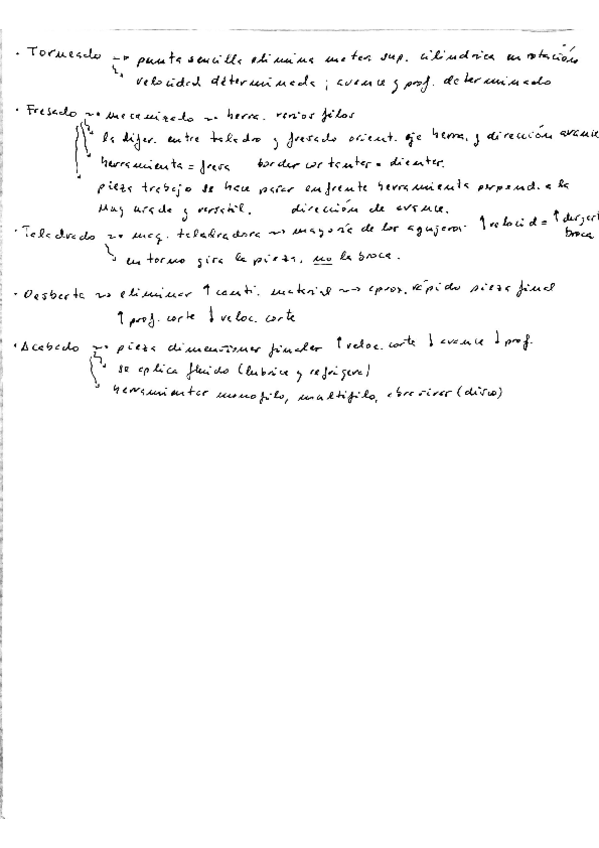 · Torneado → punta sencilla elimina mater. sup. cilíndrica en rotación
velocidad determinada ; avance y prof. determinado
· Fresado → mecanizado → herra. varios filos
la difer. entre taladro y fresado orient. eje herra. y dirección avance
herramienta = fresa bordes cortantes = dientes.
pieza trabajo se hace pasar enfrente herramienta perpend. a la
Muy usada y versatil. dirección de avance.
· Taladrado → maq. taladradora → mayoría de los agujeros. ↑ velocid = ↑ desgast
broca
en torno gira la pieza, no la broca.
· Desbaste → eliminar ↑ canti. material → aprox. rápido pieza final
↑ prof. corte ↓ veloc. corte
· Acabado → pieza dimensiones finales ↑ veloc. corte ↓ avance ↓ prof.
se aplica fluido (lubrica y refrigera)
herramientas monofilo, multifilo, abrasivas (disco)